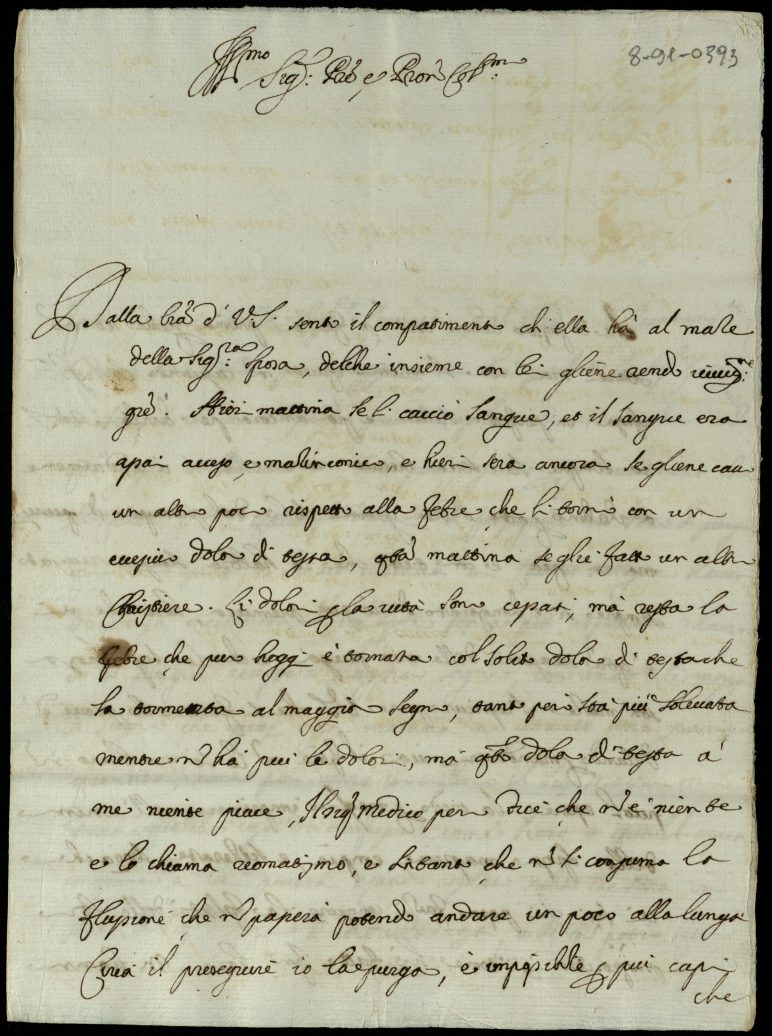 8-91-0393
Ill.mo Sig.r P.re e P.ron Col.mo
Dalla l'ra d' V.S. sento il compatimento ch'ella hà al male
della Sig.ra Sposa, delche insieme con lei gliene rendo
gr'e. Hieri mattina se li cacciò sangue, et il sangue era
assai acceso e malinconico, e hieri sera ancora se gliene cavò
un altro poco rispetto alla febre che li tornò con un
dolor di testa, q'sta mattina se gli è fatto un altro
Cristiere. Li dolori p la vita sono cessati, mà resta la
febre che pur hoggi è tornata col solito dolor di testa che
la tormenta al maggior segno, tanto però stà più sollevata
mentre n' hà più le dolori, mà q'sto dolor di testa à
me niente piace, Il sig.r Medico però dice che n' è niente
e lo chiama reomatismo, e intanto che n' si consuma la
flussione che n' passerà potendo andare un poco alla lunga
Circa il proseguire io la purga, è impossibile p più capi
che